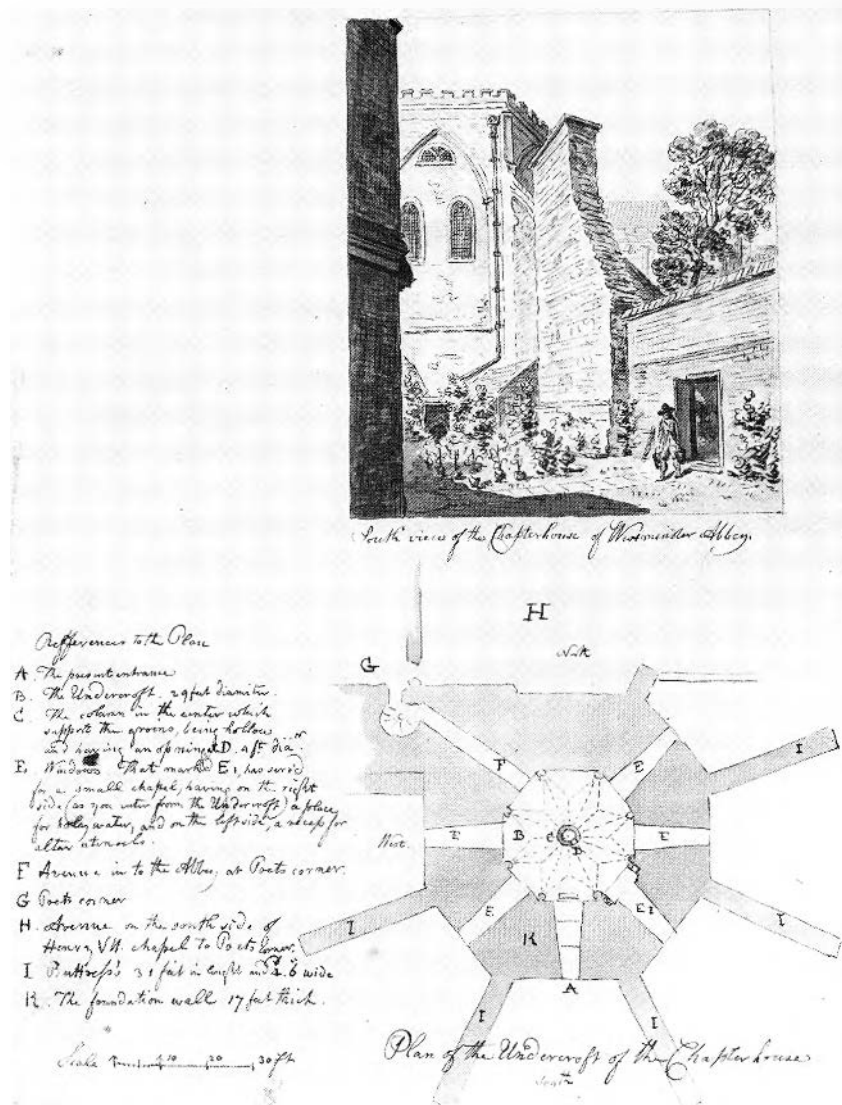 South view of the Chapterhouse of Westminster Abbey.
H
North
G
Refferences to the Plan
A The present entrance
B. The Undercroft. 29 feet diamiter.
C. The colum in the center which
support the groins, being hollow
and having an opning at D. 4 ft dia.r
E. Windows. That marked E1, has served
for a small chapel, having on the right
side (as you enter from the Undercroft) a place
for holey water, and on the left side, a recess for
alter utensels.
F Avenue in to the Abbey, at Poets corner.
G Poets corner
H. Avenue on the south side of
Henry VII. chapel to Poets corner.
I Buttress's 31 feet in lenght and 4.6 wide
K. The foundation wall 17 feet thick.
Scale 10 20 30 ft
F
E
I
West.
E
B
C
D
E
I
E
E1
I
K
A
I
I
Plan of the Undercroft of the Chapterhouse
South